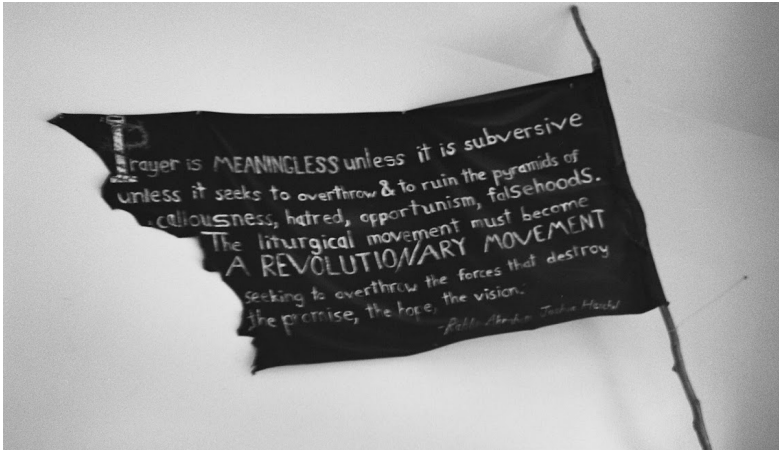 Prayer is MEANINGLESS unless it is subversive
unless it seeks to overthrow & to ruin the pyramids of
callousness, hatred, opportunism, falsehoods.
The liturgical movement must become
A REVOLUTIONARY MOVEMENT
seeking to overthrow the forces that destroy
the promise, the hope, the vision.
-Rabbi Abraham Joshua Heschel